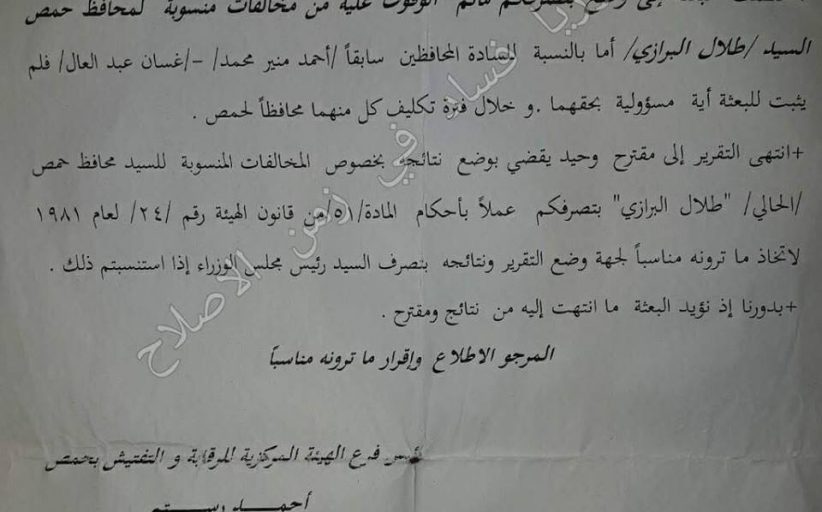 إلى وضع بتصرفكم ماتم الوقوف عليه من مخالفات منسوبة لمحافظ حمص
السيد /طلال البرازي/ أما بالنسبة للسادة المحافظين سابقاً /أحمد منير محمد/ –/غسان عبد العال/ فلم
يثبت للبعثة أية مسؤولية بحقهما .و خلال فترة تكليف كل منهما محافظاً لحمص .
+انتهى التقرير إلى مقترح وحيد يقضي بوضع نتائجه بخصوص المخالفات المنسوبة للسيد محافظ حمص
/الحالي/ "طلال البرازي" بتصرفكم عملاً بأحكام المادة/٥١/من قانون الهيئة رقم /٢٤/ لعام ١٩٨١
لاتخاذ ما ترونه مناسباً لجهة وضع التقرير ونتائجه بتصرف السيد رئيس مجلس الوزراء إذا استنسبتم ذلك .
+بدورنا إذ نؤيد البعثة ما انتهت إليه من نتائج ومقترح .
المرجو الاطلاع وإقرار ما ترونه مناسباً
رئيس فرع الهيئة المركزية للرقابة و التفتيش بحمص
أحمـــد رستـــم
فساد في زمن الاصلاح